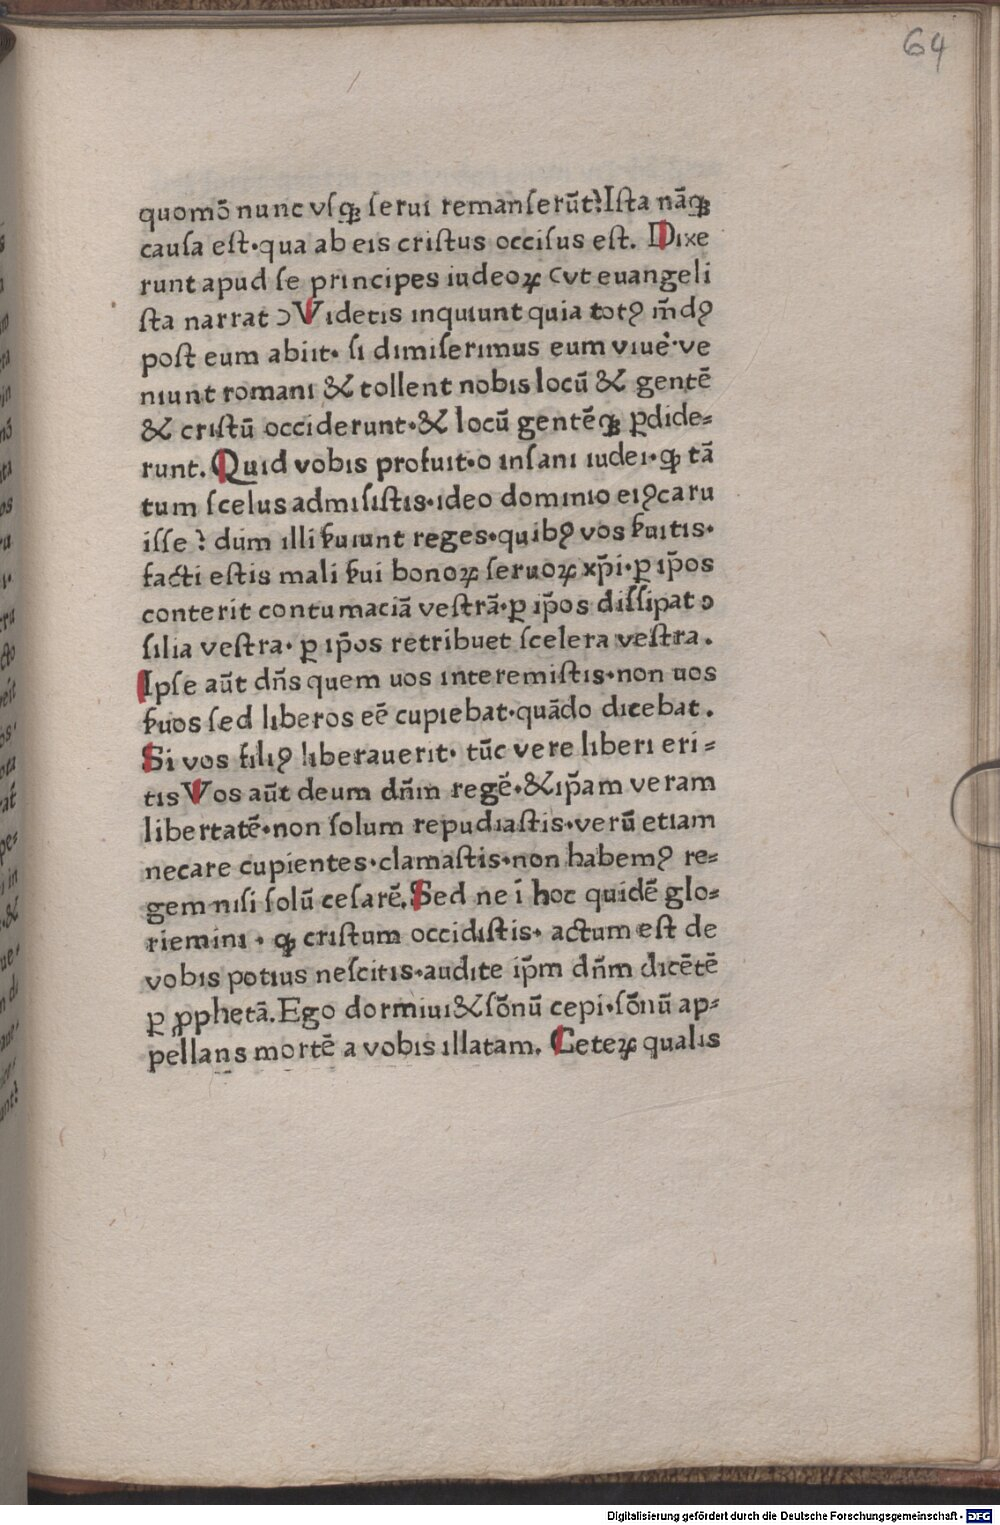 64
quomō nunc vſqꝫ ſerui remanſerūt? Iſta nāqꝫ
cauſa eſt·qua ab eis criſtus occiſus eſt. Dixe
runt apud ſe principes iudeoꝝ (vt euangeli
ſta narrat) Videtis inquiunt quia totꝰ m̄dꝰ
poſt eum abiit· ſi dimiſerimus eum viue᷑·ve
niunt romani & tollent nobis locū & gentē
& criſtū occiderunt·& locū gentēqꝫ ꝑdide=
runt. Quid vobis profuit·o inſani iudei·qꝫ tā
tum ſcelus admiſiſtis·ideo dominio eiꝰ caru
iſſe? dum illi ẜuiunt reges·quibꝰ vos ẜuitis·
facti eſtis mali ẜui bonoꝝ ſeruoꝝ xp̄i·ꝑ ip̄os
conterit contumaciā veſtrā·ꝑ ip̄os diſſipat ↄ
ſilia veſtra· ꝑ ip̄os retribuet ſcelera veſtra.
Ipſe aūt dn̄s quem uos interemiſtis·non uos
ẜuos ſed liberos eē cupiebat·quādo dicebat.
Si vos filiꝰ liberauerit· tūc vere liberi eri=
tis Vos aūt deum dn̄m regē·& ip̄am veram
libertatē·non ſolum repudiaſtis·verū etiam
necare cupientes·clamaſtis·non habemꝰ re=
gem niſi ſolū ceſarē. Sed ne ī hoc quidē glo=
riemini · qꝫ criſtum occidiſtis· actum eſt de
vobis potius neſcitis·audite ip̄m dn̄m dicētē
ꝑ ꝓphetā. Ego dormiui & ſōnū cepi·ſōnū ap=
pellans mortē a vobis illatam. Ceteꝝ qualis
Digitalisierung gefördert durch die Deutsche Forschungsgemeinschaft - DFG